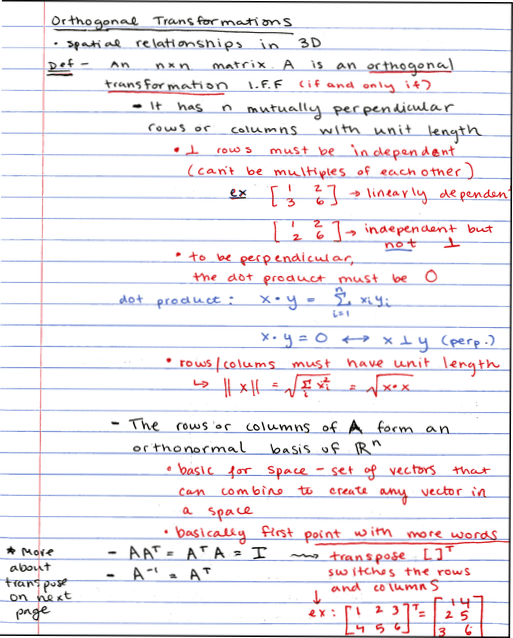 Orthogonal Transformations
• spatial relationships in 3D
Def - An n×n matrix A is an orthogonal
transformation I.F.F (if and only if)
- It has n mutually perpendicular
rows or columns with unit length
• ⊥ rows must be independent
(can't be multiples of each other)
ex [1 2 3 6] → linearly dependent
[1 2 2 6] → independent but
not ⊥
• to be perpendicular,
the dot product must be 0
dot product: x • y = Σ_{i=1}^{n} xᵢyᵢ
x • y = 0 ↔ x ⊥ y (perp.)
• rows/colums must have unit length
↳ ||x|| = √(Σᵢ xᵢ²) = √(x•x)
- The rows or columns of A form an
orthonormal basis of ℝⁿ
• basic for space - set of vectors that
can combine to create any vector in
a space
• basically first point with more words
* More
about
transpose
on next
page
- AAᵀ = AᵀA = I ⇝ transpose [ ]ᵀ
- A⁻¹ = Aᵀ
switches the rows
and columns
ex: [1 2 3 4 5 6]ᵀ = [1 4 2 5 3 6]